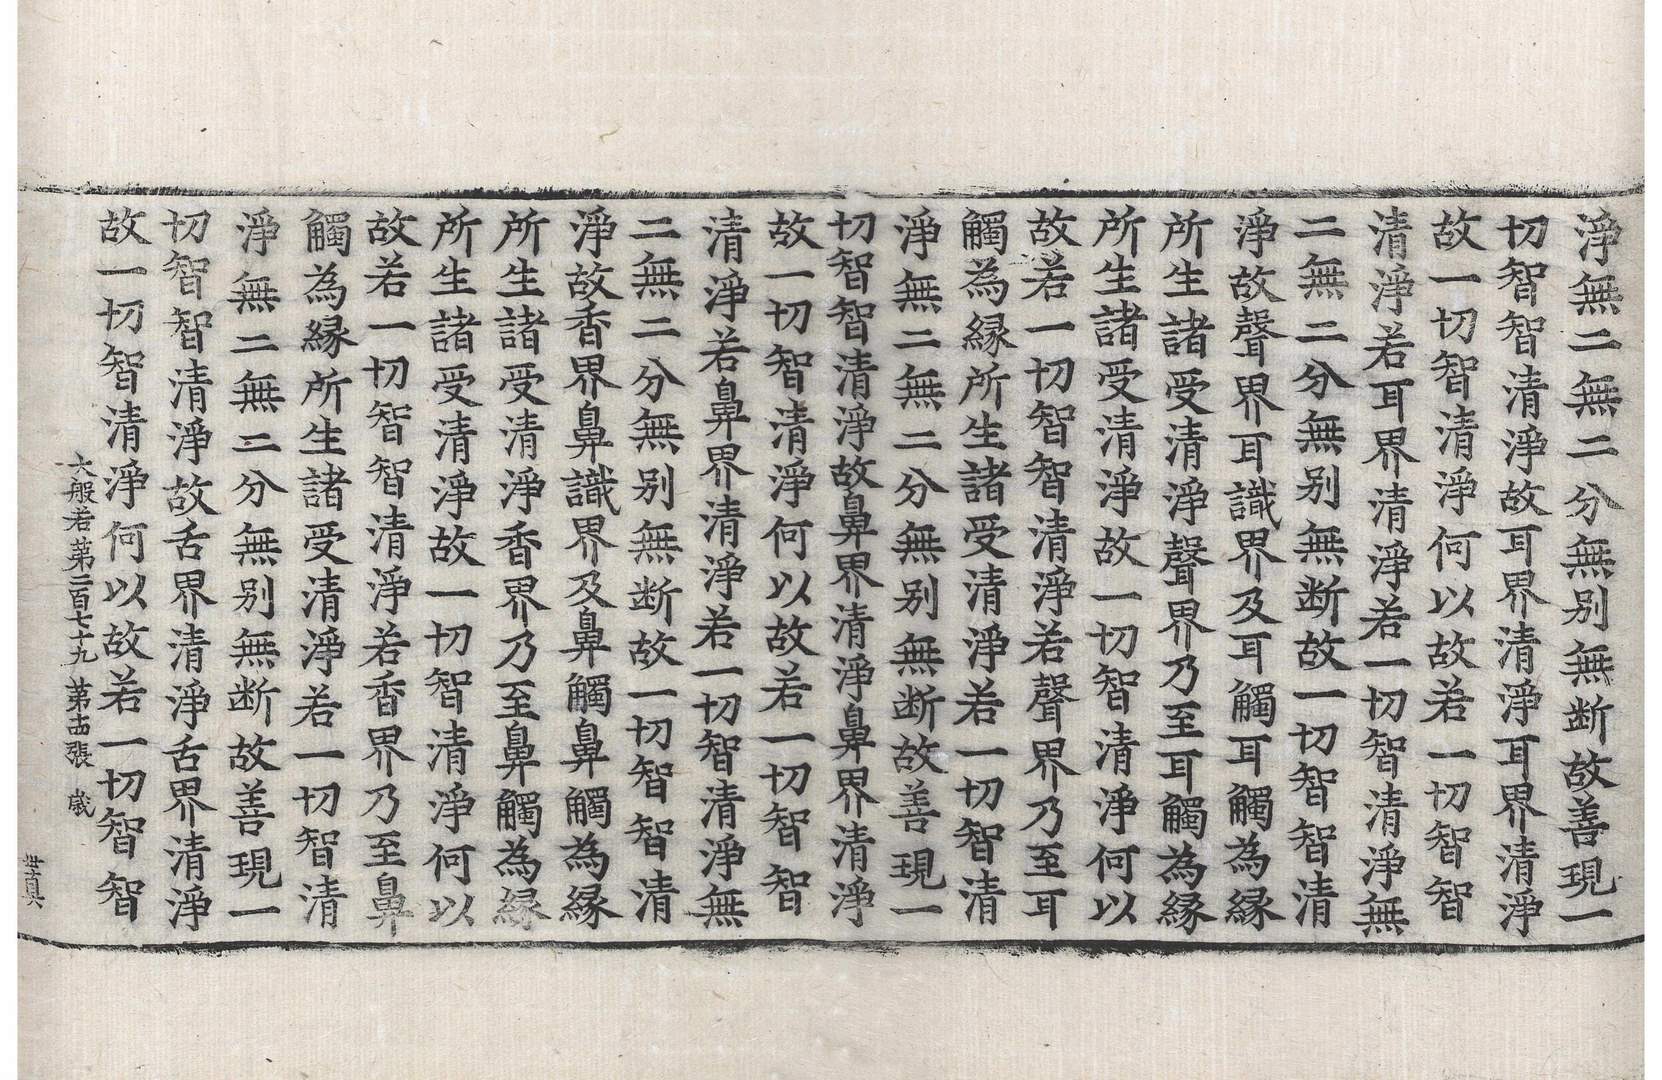 淨無二無二分無别無断故善現一
切智智清淨故耳界清淨耳界清淨
故一切智清淨何以故若一切智智
清淨若耳界清淨若一切智清淨無
二無二分無别無断故一切智智清
淨故聲界耳識界及耳觸耳觸為縁
所生諸受清淨聲界乃至耳觸為縁
所生諸受清淨故一切智清淨何以
故若一切智智清淨若聲界乃至耳
觸為縁所生諸受清淨若一切智清
淨無二無二分無别無断故善現一
切智智清淨故鼻界清淨鼻界清淨
故一切智清淨何以故若一切智智
清淨若鼻界清淨若一切智清淨無
二無二分無别無断故一切智智清
淨故香界鼻識界及鼻觸鼻觸為縁
所生諸受清淨香界乃至鼻觸為縁
所生諸受清淨故一切智清淨何以
故若一切智智清淨若香界乃至鼻
觸為縁所生諸受清淨若一切智清
淨無二無二分無别無断故善現一
切智智清淨故舌界清淨舌界清淨
故一切智清淨何以故若一切智智
大般若第二百七十九 第十四張 歲